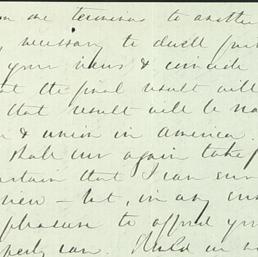 one terminus to another
necessary to dwell
your views & coincide
the final result will
that result will be
& union in America.
shall ever again take
certain that I can
view — but, in any
pleasure to afford you
can. Hold